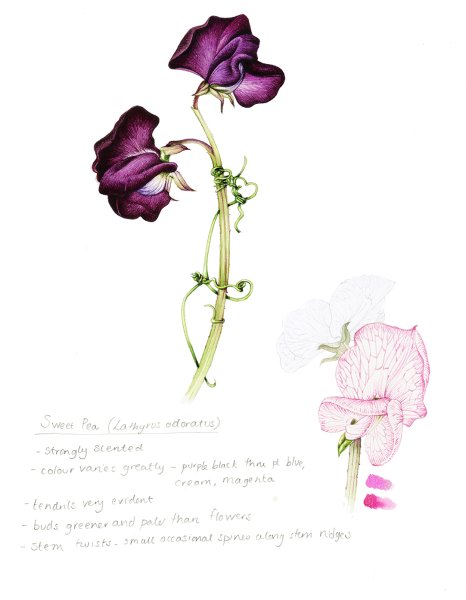 Sweet Pea (Lathyrus odoratus)
- Strongly scented
- colour varies greatly - purple black thru pl blue,
cream, magenta
- tendrils very evident
- buds greener and paler than flowers
- stem twists - small occasional spines along stem ridges